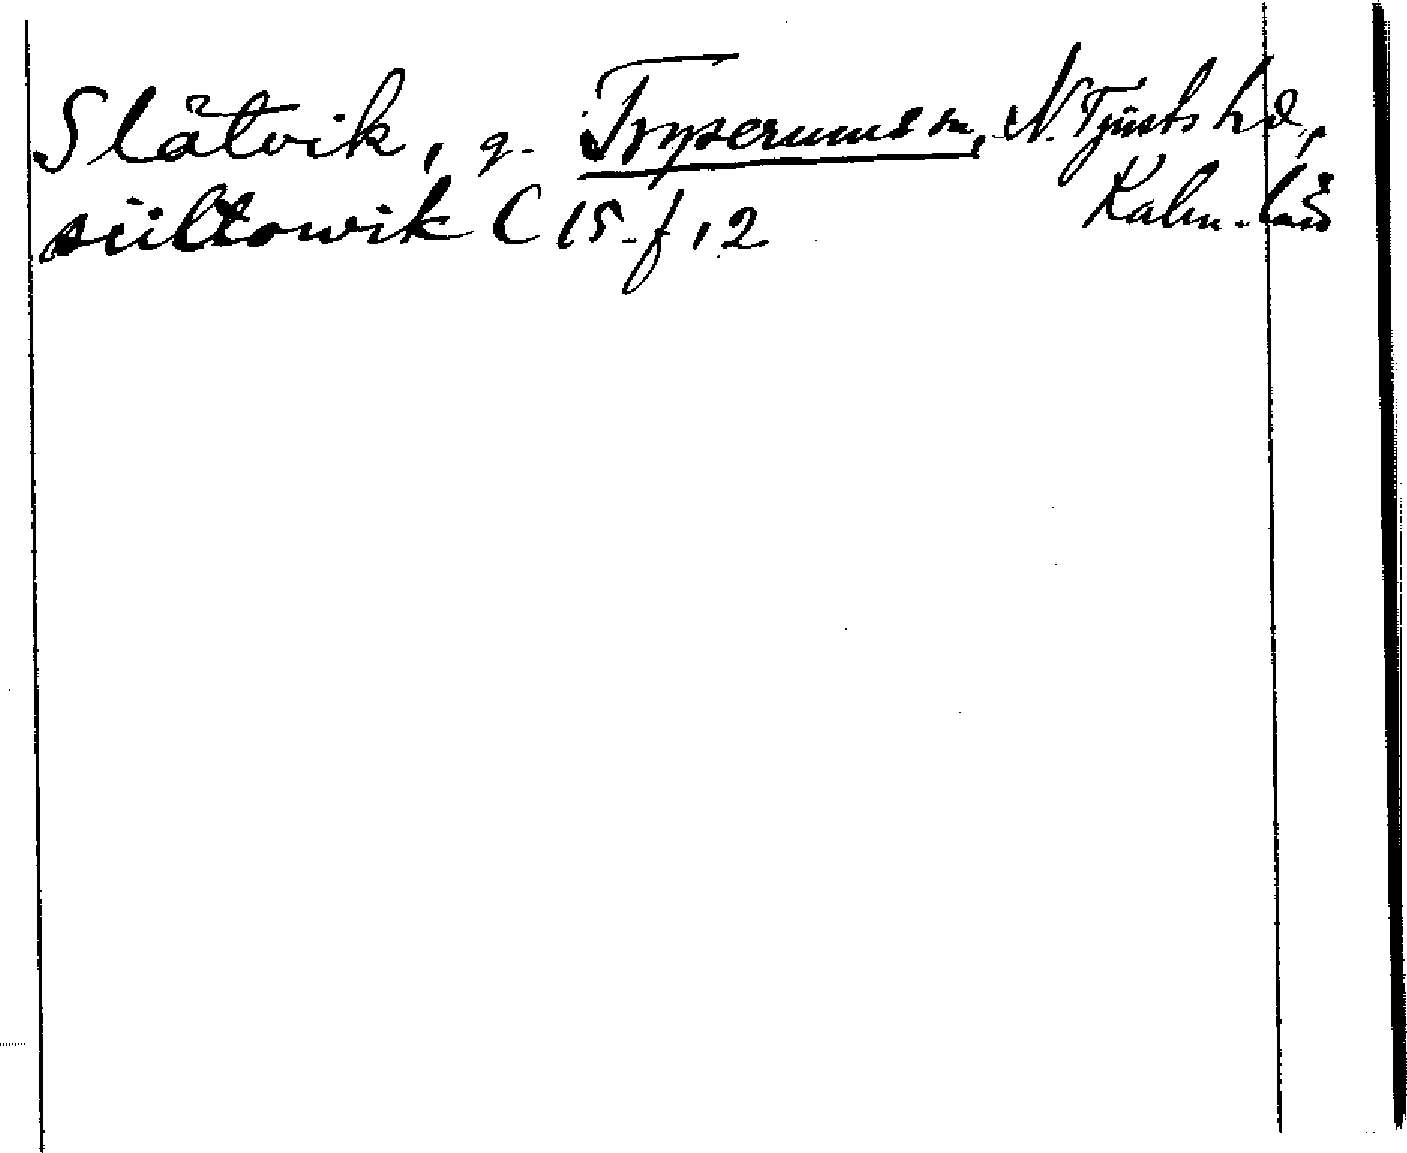 Slätvik, g. Tryserums sn, N. Tjusts hd,
Kalm. län
siiltowik C 15 f, 2